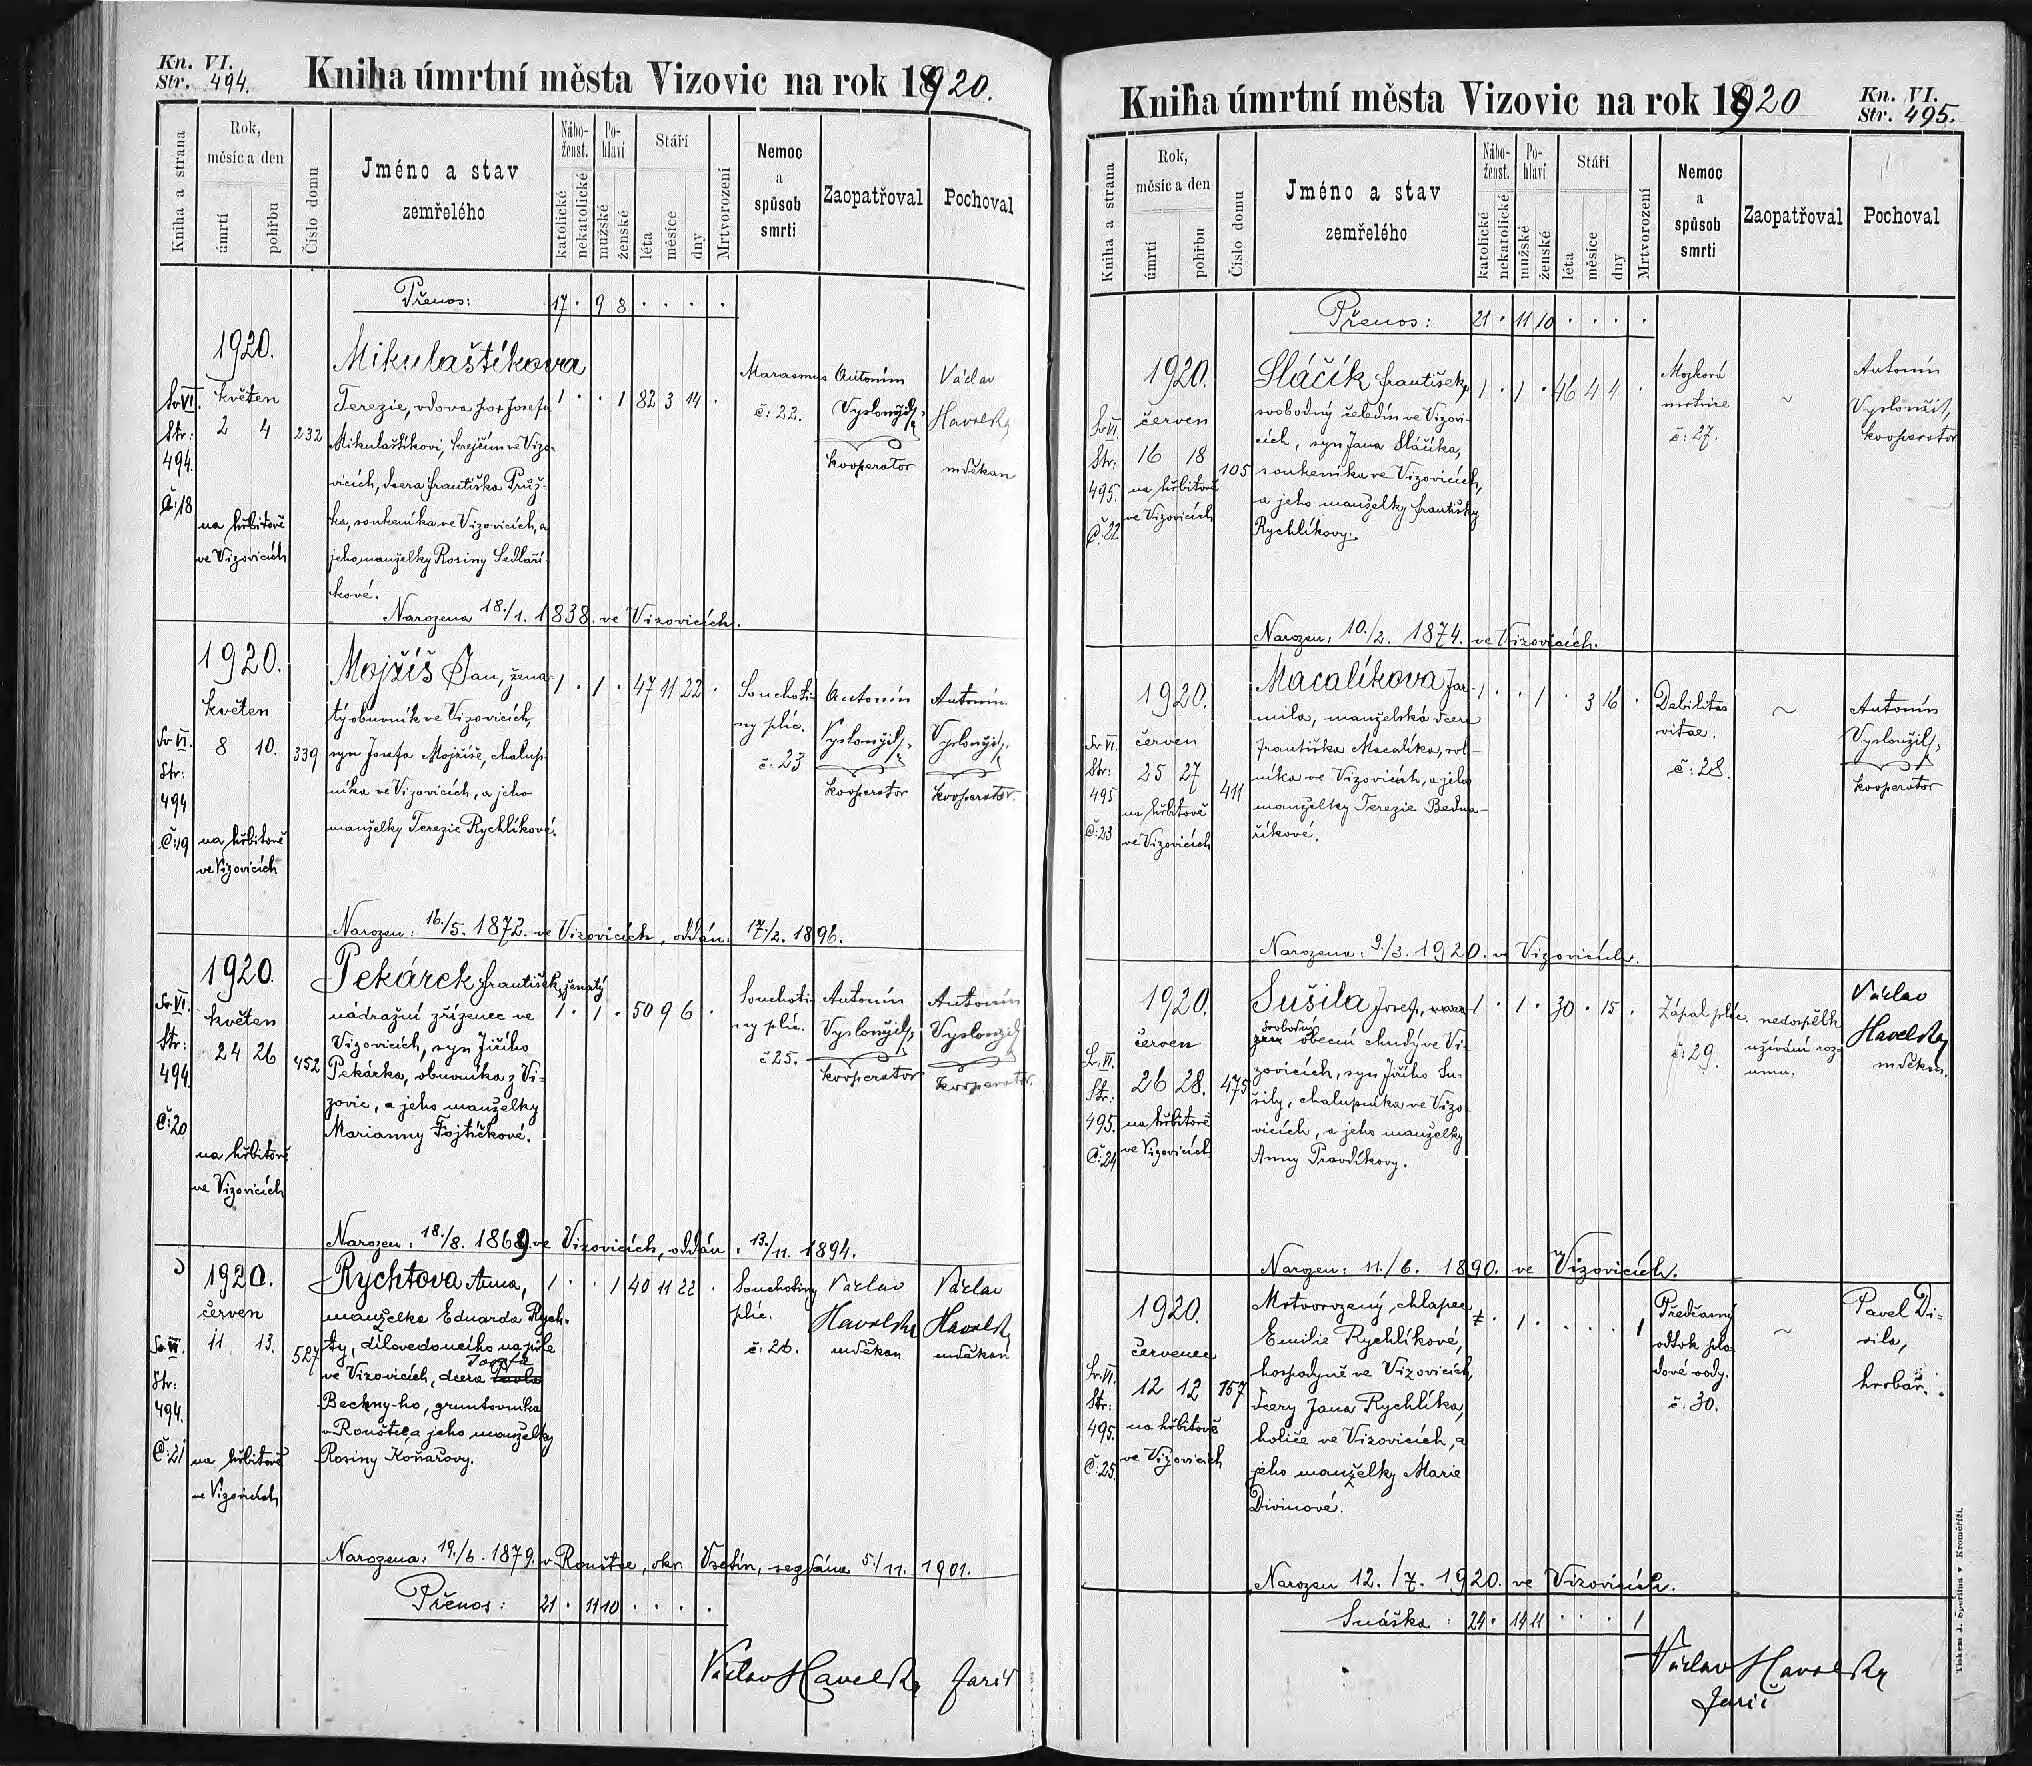 Kn. VI.
Str. 494.
Kniha úmrtní města Vizovic na rok 1920.
Kniha a strana
Rok,
měsíc a den
úmrtí
pohřbu
Číslo domu
Jméno a stav
zemřelého
Nábo-
ženst.
katolické
nekatolické
Po-
hlaví
mužské
ženské
Stáří
léta
měsíce
dny
Mrtvorození
Nemoc
a
spůsob
smrti
Zaopatřoval
Pochoval
Přenos: 17 · 9 8 · · · ·
Sv VI.
Str:
494.
Č:18
1920.
květen
2 4
na hřbitově
ve Vizovicích
232
Mikulaštíkova
Terezie, vdova po Josefu
Mikulaštíkovi, krejčím ve Vizo-
vicích, dcera Františka Pruž-
ka, soukeníka ve Vizovicích, a
jeho manželky Rosiny Sedlaří-
kové.
Narozena 18./1. 1838. ve Vizovicích.
1 · · 1 82 3 14 ·
Marasmus
č: 22.
Antonín
Vysloužil,
kooperator
Václav
Havelka
měkan
Sv VI.
Str:
494
Č:19
1920.
květen
8 10.
na hřbitově
ve Vizovicích
339
Mojžíš Jan, žena-
tý obuvník ve Vizovicích,
syn Josefa Mojžíše, chalup-
níka ve Vizovicích, a jeho
manželky Terezie Rychlíkové.
Narozen: 16./5. 1872. ve Vizovicích, oddán: 17./2. 1896.
1 · 1 · 47 11 22 ·
Souchoti-
ny plic.
č: 23
Antonín
Vysloužil,
kooperator
Antonín
Vysloužil,
kooperator.
Sv VI.
Str:
494.
Č:20
1920.
květen
24 26
na hřbitově
ve Vizovicích
452
Pekárek František, ženatý
nádražní zřízenec ve
Vizovicích, syn Jiřího
Pekárka, obuvníka z Vi-
zovic, a jeho manželky
Marianny Fojtíčkové.
Narozen: 18./8. 1869. ve Vizovicích, oddán: 13./11. 1894.
1 · 1 · 50 9 6 ·
Souchoti-
ny plic.
č 25.
Antonín
Vysloužil,
kooperator
Antonín
Vysloužil
kooperator.
Sv VI.
Str:
494.
Č:21
1920.
červen
11 13.
na hřbitově
ve Vizovicích
527
Rychtova Anna,
manželka Eduarda Rych-
ty, dílovedoucího na pile
Josefa
ve Vizovicích, dcera
Bechny-ho, gruntovníka
v Rouštce, a jeho manželky
Rosiny Koňařovy.
Narozena: 19./6. 1879. v Rouštce, okr. Vsetín, sezdána 5./11. 1901.
1 · · 1 40 11 22 ·
Souchotiny
plic.
č: 26.
Václav
Havelka
měkan
Václav
Havelka
měkan
Přenos: 21 · 11 10 · · · ·
Václav Havelka farář
Kniha úmrtní města Vizovic na rok 1920
Kn. VI.
Str. 495.
Kniha a strana
Rok,
měsíc a den
úmrtí
pohřbu
Číslo domu
Jméno a stav
zemřelého
Nábo-
ženst.
katolické
nekatolické
Po-
hlaví
mužské
ženské
Stáří
léta
měsíce
dny
Mrtvorození
Nemoc
a
spůsob
smrti
Zaopatřoval
Pochoval
Přenos: 21 · 11 10 · · · ·
Sv VI.
Str:
495.
Č:22
1920.
červen
16 18
na hřbitově
ve Vizovicích
105
Sláčík František,
svobodný čeledín ve Vizovi-
cích, syn Jana Sláčíka,
soukeníka ve Vizovicích,
a jeho manželky Františky
Rychlíkovy.
Narozen: 10./2. 1874. ve Vizovicích.
1 · 1 · 46 4 4 ·
Mozková
mrtvice
č: 27.
~
Antonín
Vysloužil,
kooperator
Sv VI.
Str:
495
Č:23
1920.
červen
25 27
na hřbitově
ve Vizovicích
411
Macalíkova Jar-
mila, manželská dcera
Františka Macalíka, rol-
níka ve Vizovicích, a jeho
manželky Terezie Bedna-
říkové.
Narozena: 9./3. 1920. ve Vizovicích.
1 · · 1 · 3 16 ·
Debilitas
vitae.
č: 28.
~
Antonín
Vysloužil,
kooperator
Sv. VI.
Str:
495.
Č:24
1920.
červen
26 28.
na hřbitově
ve Vizovicích
475
Sušila Josef,
svobodný
obecní chudý ve Vi-
zovicích, syn Jiřího Su-
šily, chalupníka ve Vizo-
vicích, a jeho manželky
Anny Pravdíkovy.
Narozen: 11./6. 1890. ve Vizovicích.
1 · 1 · 30 · 15 ·
Zápal plic.
č: 29.
nedospělk
užívání roz-
umu.
Václav
Havelka
měkan.
Sv. VI.
Str:
495.
Č:25
1920.
červenec
12 12
na hřbitově
ve Vizovicích
157
Mrtvorozený chlapec
Emilie Rychlíkové,
hospodyně ve Vizovicích,
dcery Jana Rychlíka,
holiče ve Vizovicích, a
jeho manželky Marie
Divinové.
Narozen 12./7. 1920. ve Vizovicích.
· 1 · · · · 1
Předčasný
odtok plo-
dové vody.
č: 30.
~
Pavel Di-
vila,
hrobař.
Snáška: 24 · 14 11 · · · 1
Václav Havelka
farář
Tiskem J. Šperlína v Kroměříži.